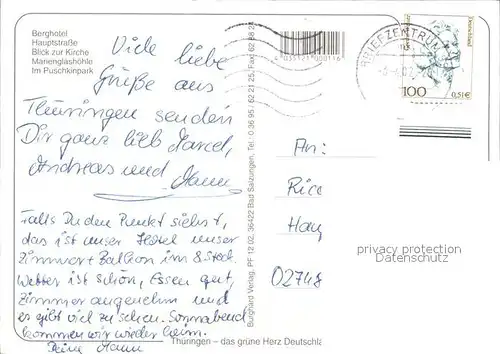 Berghotel
Hauptstraße
Blick zur Kirche
Marienglashöhle
Im Puschkinpark
Viele liebe
Grüße aus
Thüringen senden
Dir ganz lieb Marcel,
Andreas und
Mama
Falls Du den Punkt siehst,
das ist unser Hotel unser
Zimmer + Balkon im 8 Stock
Wetter ist schön, Essen gut,
Zimmer angenehm und
es gibt viel zu sehen. Sonnabend
kommen wir wieder heim.
Deine Mama
Thüringen – das grüne Herz Deutschla
Burghard Verlag, PF 12 02, 36422 Bad Salzungen, Tel.: 0 36 95 / 62 21 25, Fax: 62 88 2
4 035121 000116
BRIEFZENTRUM
Deutschland
100
0,51€
An:
Ricc
Hay
02748
privacy protection
Datenschutz